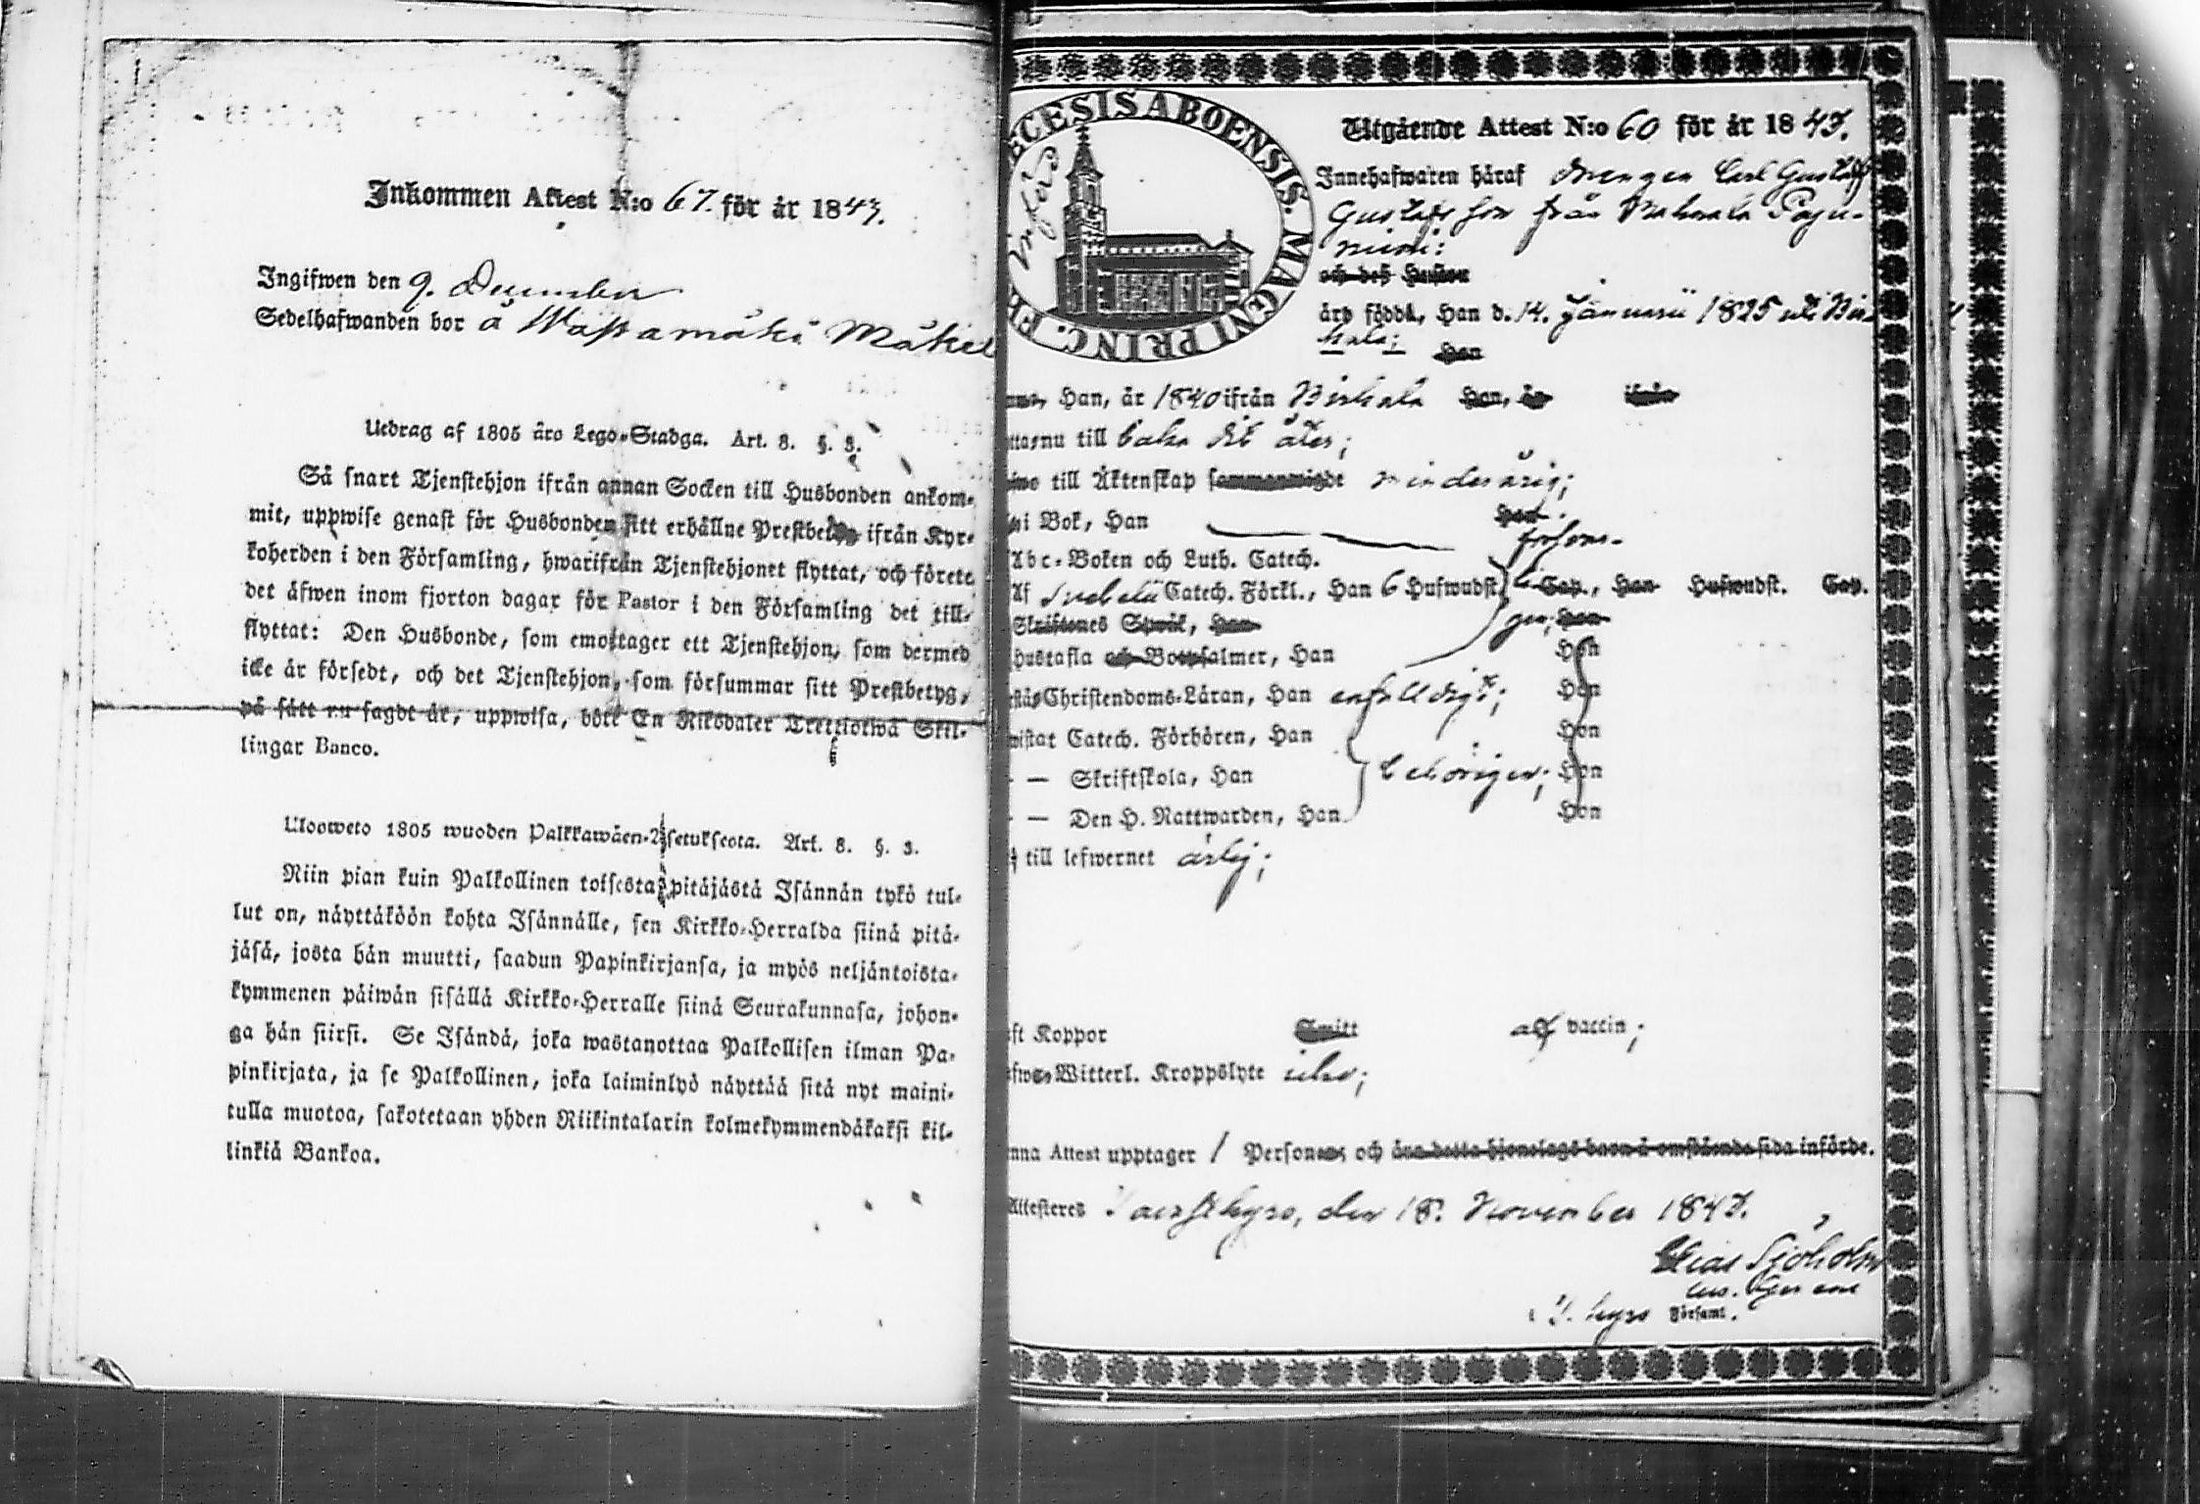 Inkommen Attest N:o 67. för år 1843.
Ingifwen den 9. December
Sedelhafwanden bor å
Utdrag af 1805 års Lego-Stadga. Art. 8. §. 3.
Så snart Tjenstehjon ifrån annan Socken till Husbonden ankom-
mit, uppwise genast för Husbonden sitt erhållne Prestbetyg ifrån Kyr-
koherden i den Församling, hwarifrån Tjenstehjonet flyttat, och förete
det äfwen inom fjorton dagar för Pastor i den Församling det till-
flyttat: Den Husbonde, som emottager ett Tjenstehjon, som dermed
icke är försedt, och det Tjenstehjon, som försummar sitt Prestbetyg,
på sätt nu sagdt är, uppwisa, böte En Riksdaler Trettiotwå Skil-
lingar Banco.
Ulosweto 1805 wuoden Palkkawäen-Asetuksesta. Art. 8. §. 3.
Niin pian kuin Palkollinen toisesta pitäjästä Isännän tykö tul-
lut on, näyttäköön kohta Isännälle, sen Kirkko-Herralda siinä pitä-
jäsä, josta hän muutti, saadun Papinkirjansa, ja myös neljäntoista-
kymmenen päiwän sisällä Kirkko-Herralle siinä Seurakunnasa, johon-
ga hän siirsi. Se Isändä, joka wastanottaa Palkollisen ilman Pa-
pinkirjata, ja se Palkollinen, joka laiminlyö näyttää sitä nyt maini-
tulla muotoa, sakotetaan yhden Riikintalarin kolmekymmendäkaksi kil-
linkiä Bankoa.
ECESIS ABOENSIS. MAGNI PRINC. F
införd
Utgående Attest N:o 60 för år 1843.
Innehafwaren häraf drengen Carl Gustaf
Gustafsson från
niemi:
och deß Hustru
äro födde, Han d. 14. Januarii 1825 uti Bir-
kala; Hon
Han, år 1840 ifrån Birkala Hon, år ifrån
nu till baka dit åter;
till Äktenskap sammanwigde minderårig;
i Bok, Han Hon
Abc-Boken och Luth. Catech. försvar-
Af Svebelii Catech. Förkl., Han 6 Hufwudst. Cap., Hon Hufwudst. Cap.
Skriftenes Språk, Han Hon
Hustafla och Botpsalmer, Han Hon
Christendoms-Läran, Han enfaldigt; Hon
wistat Catech. Förhören, Han Hon
— Skriftskola, Han behörigen; Hon
— Den H. Nattwarden, Han Hon
till lefwernet ärlig;
Koppor Smitt af vaccin;
Witterl. Kroppslyte icke;
nna Attest upptager 1 Personer och äro detta hjonelags barn å omstående sida införde.
Attesteres Tavastkyro, den 18. November 1843.
Elias Sjöholm
i T. kyro Församl.